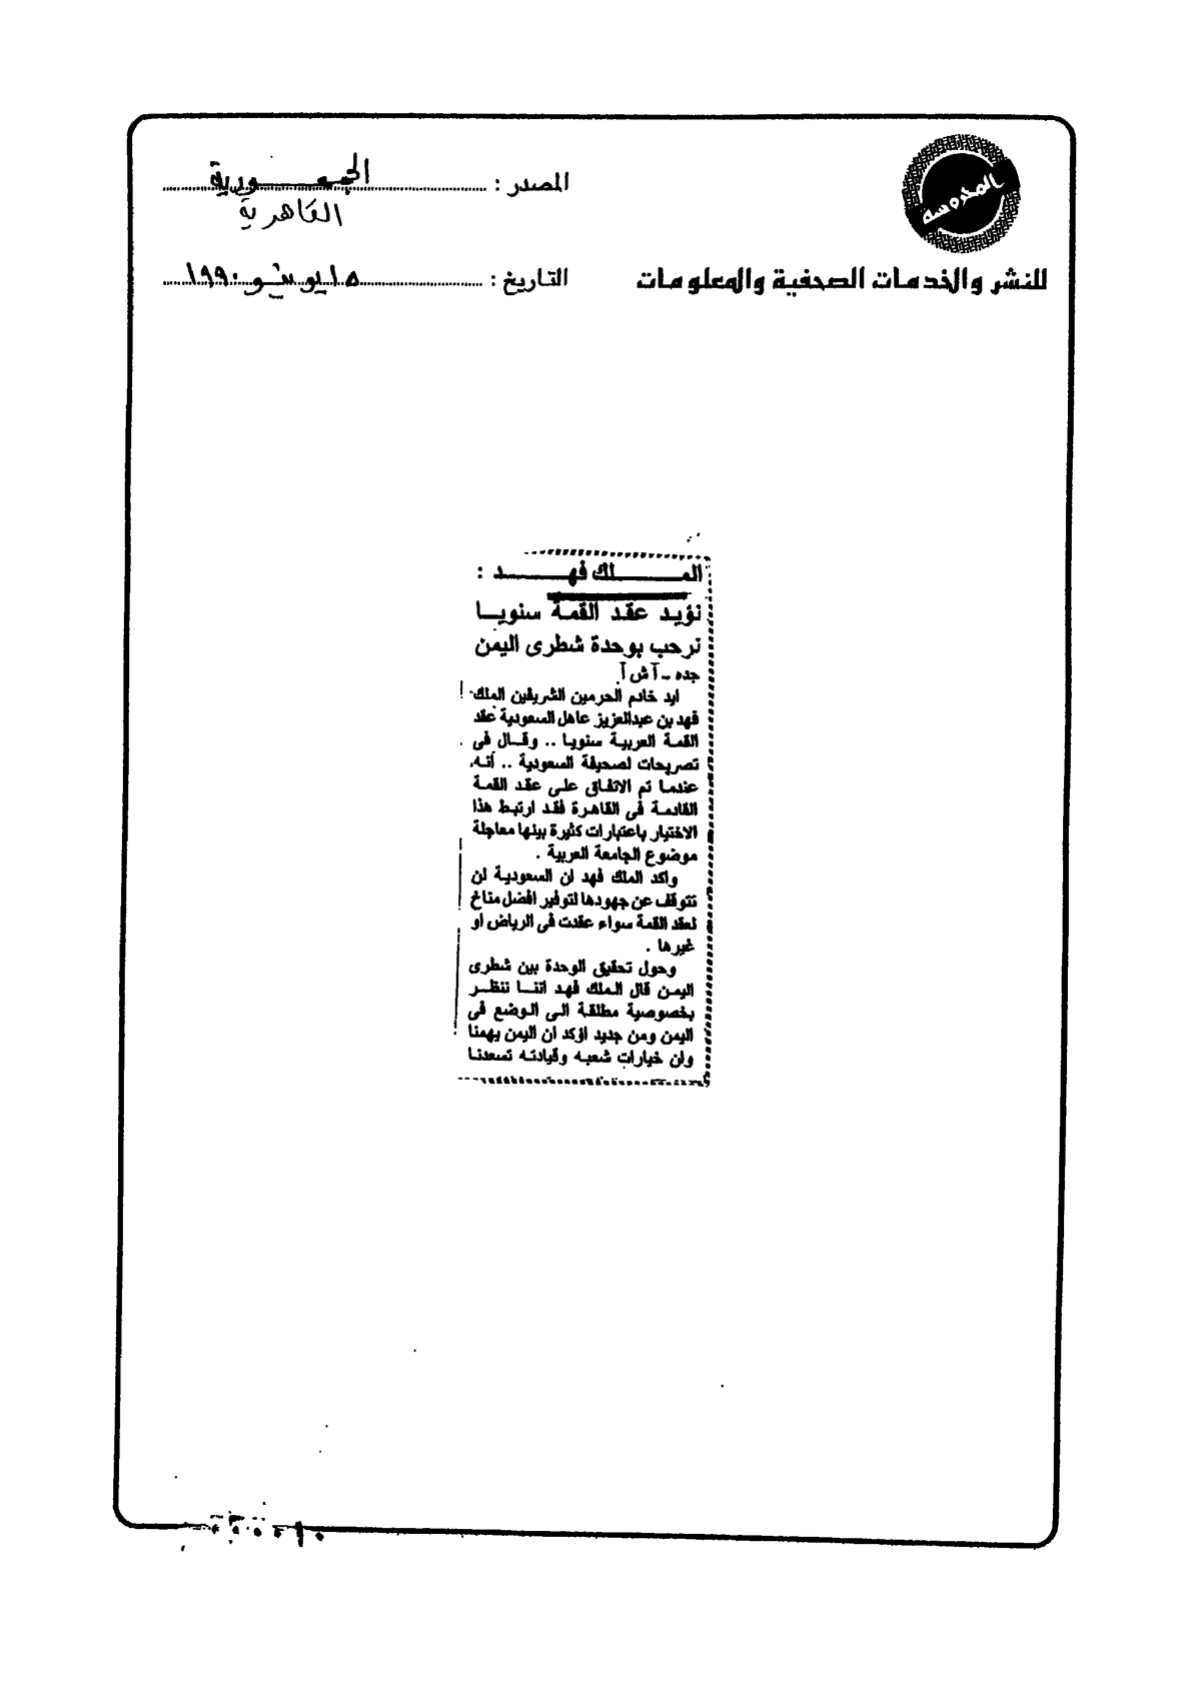 المحروسة
للنشر والخدمات الصحفية والمعلومات
المصدر : الجمهورية
القاهرية
التاريخ : ١٥ يونيو ١٩٩٠
الملك فهد :
نؤيد عقد القمة سنويا
نرحب بوحدة شطرى اليمن
جده ــ أ ش أ
ايد خادم الحرمين الشريفين الملك
فهد بن عبدالعزيز عاهل السعودية عقد
القمة العربية سنويا .. وقال فى
تصريحات لصحيفة السعودية .. أنه
عندما تم الاتفاق على عقد القمة
القادمة فى القاهرة فقد ارتبط هذا
الاختيار باعتبارات كثيرة بينها معاجلة
موضوع الجامعة العربية .
واكد الملك فهد ان السعودية لن
تتوقف عن جهودها لتوفير افضل مناخ
لعقد القمة سواء عقدت فى الرياض او
غيرها .
وحول تحقيق الوحدة بين شطرى
اليمن قال الملك فهد اننا ننظر
بخصوصية مطلقة الى الوضع فى
اليمن ومن جديد اؤكد ان اليمن يهمنا
وان خيارات شعبه وقيادته تسعدنا